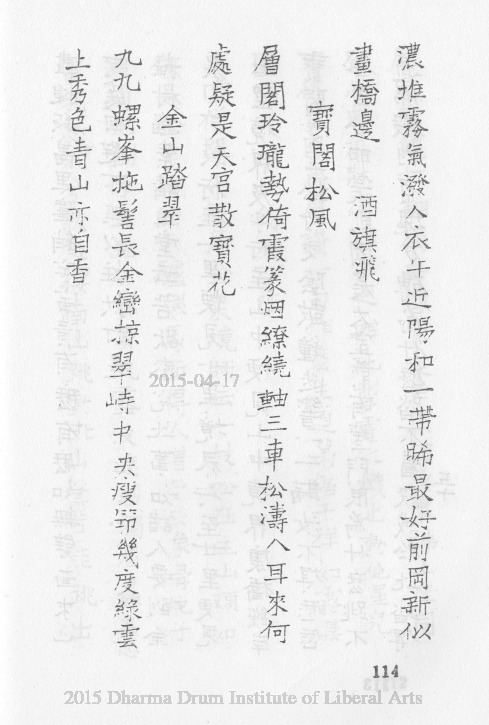 濃堆霧氣潑人衣午近陽和一帶晞最好前岡新似
畫橋邊　酒旗飛
寶閣松風
層閣玲瓏勢倚霞篆烟繚繞軸三車松濤入耳來何
處疑是天宮散寶花
金山踏翠
九九螺峯拖髻長金巒掠翠峙中央瘦笻幾度綠雲
上秀色青山亦自香
2015-04-17
114
2015 Dharma Drum Institute of Liberal Arts